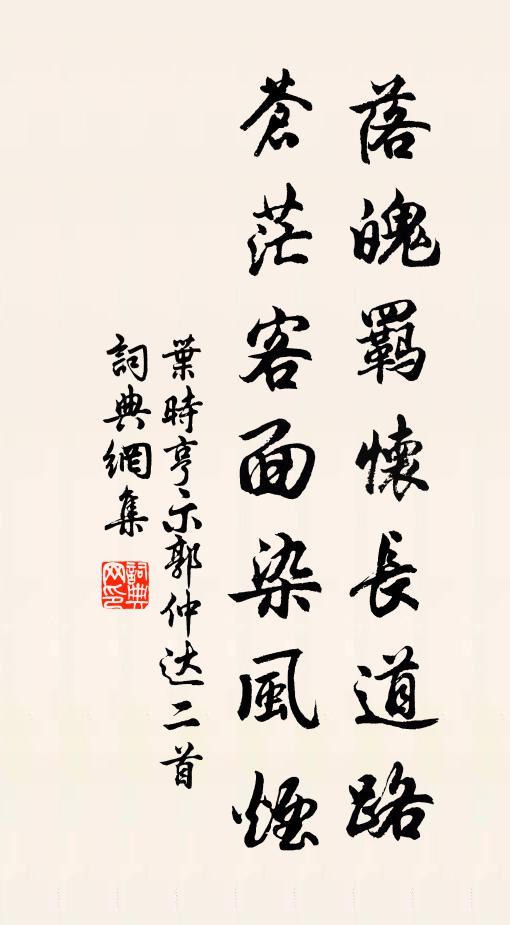 落魄羈懷長道路
蒼茫客面染風煙
葉時亨示郭仲达二首
詞典網集
詞典
网印